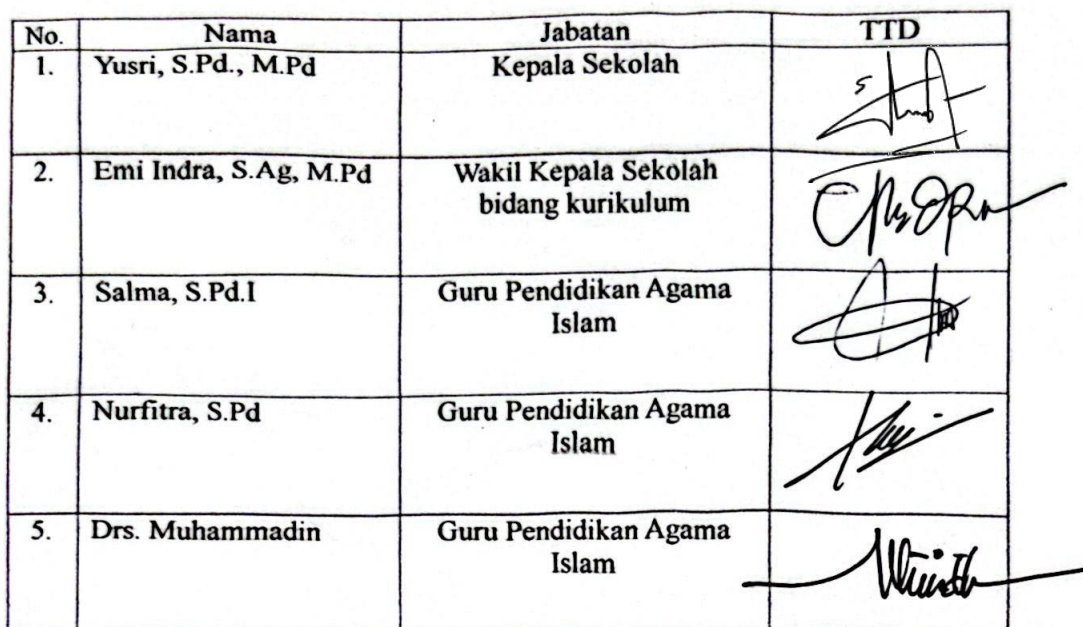 No. Nama Jabatan TTD
1. Yusri, S.Pd., M.Pd Kepala Sekolah
2. Emi Indra, S.Ag, M.Pd Wakil Kepala Sekolah
bidang kurikulum
3. Salma, S.Pd.I Guru Pendidikan Agama
Islam
4. Nurfitra, S.Pd Guru Pendidikan Agama
Islam
5. Drs. Muhammadin Guru Pendidikan Agama
Islam